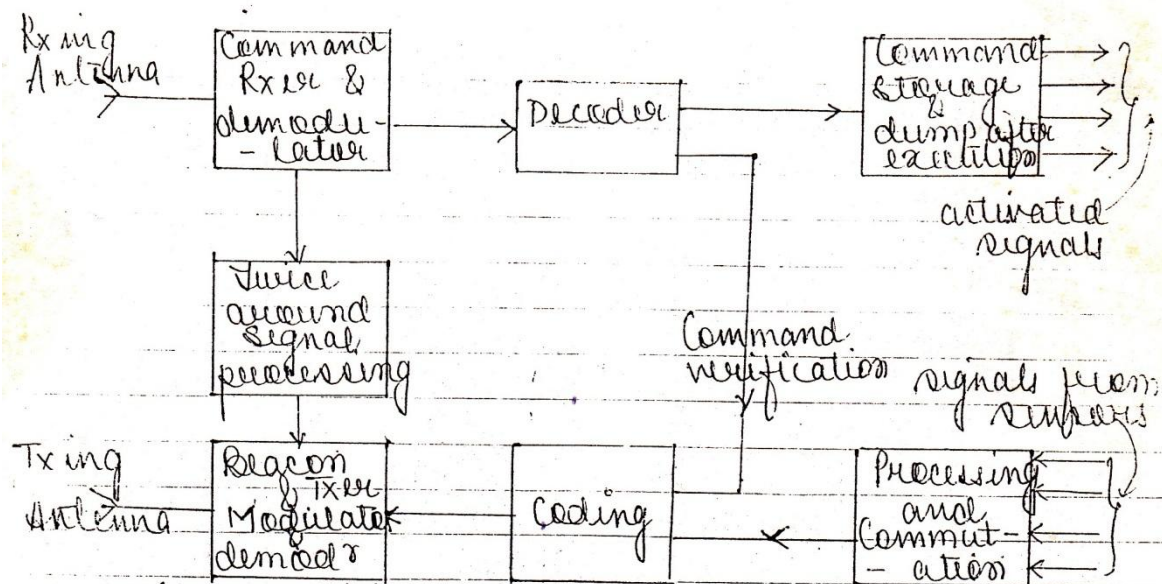 Rxing
Antenna
Command
Rxer &
demodu-
- lator
Decoder
Command
storage
&
dump after
execution
activated
signals
Twice
around
signal
processing
Command
verification
signals from
sensors
Txing
Antenna
Beacon
Txer
&
Modulator
&
demodr
Coding
Processing
and
Commut-
- ation